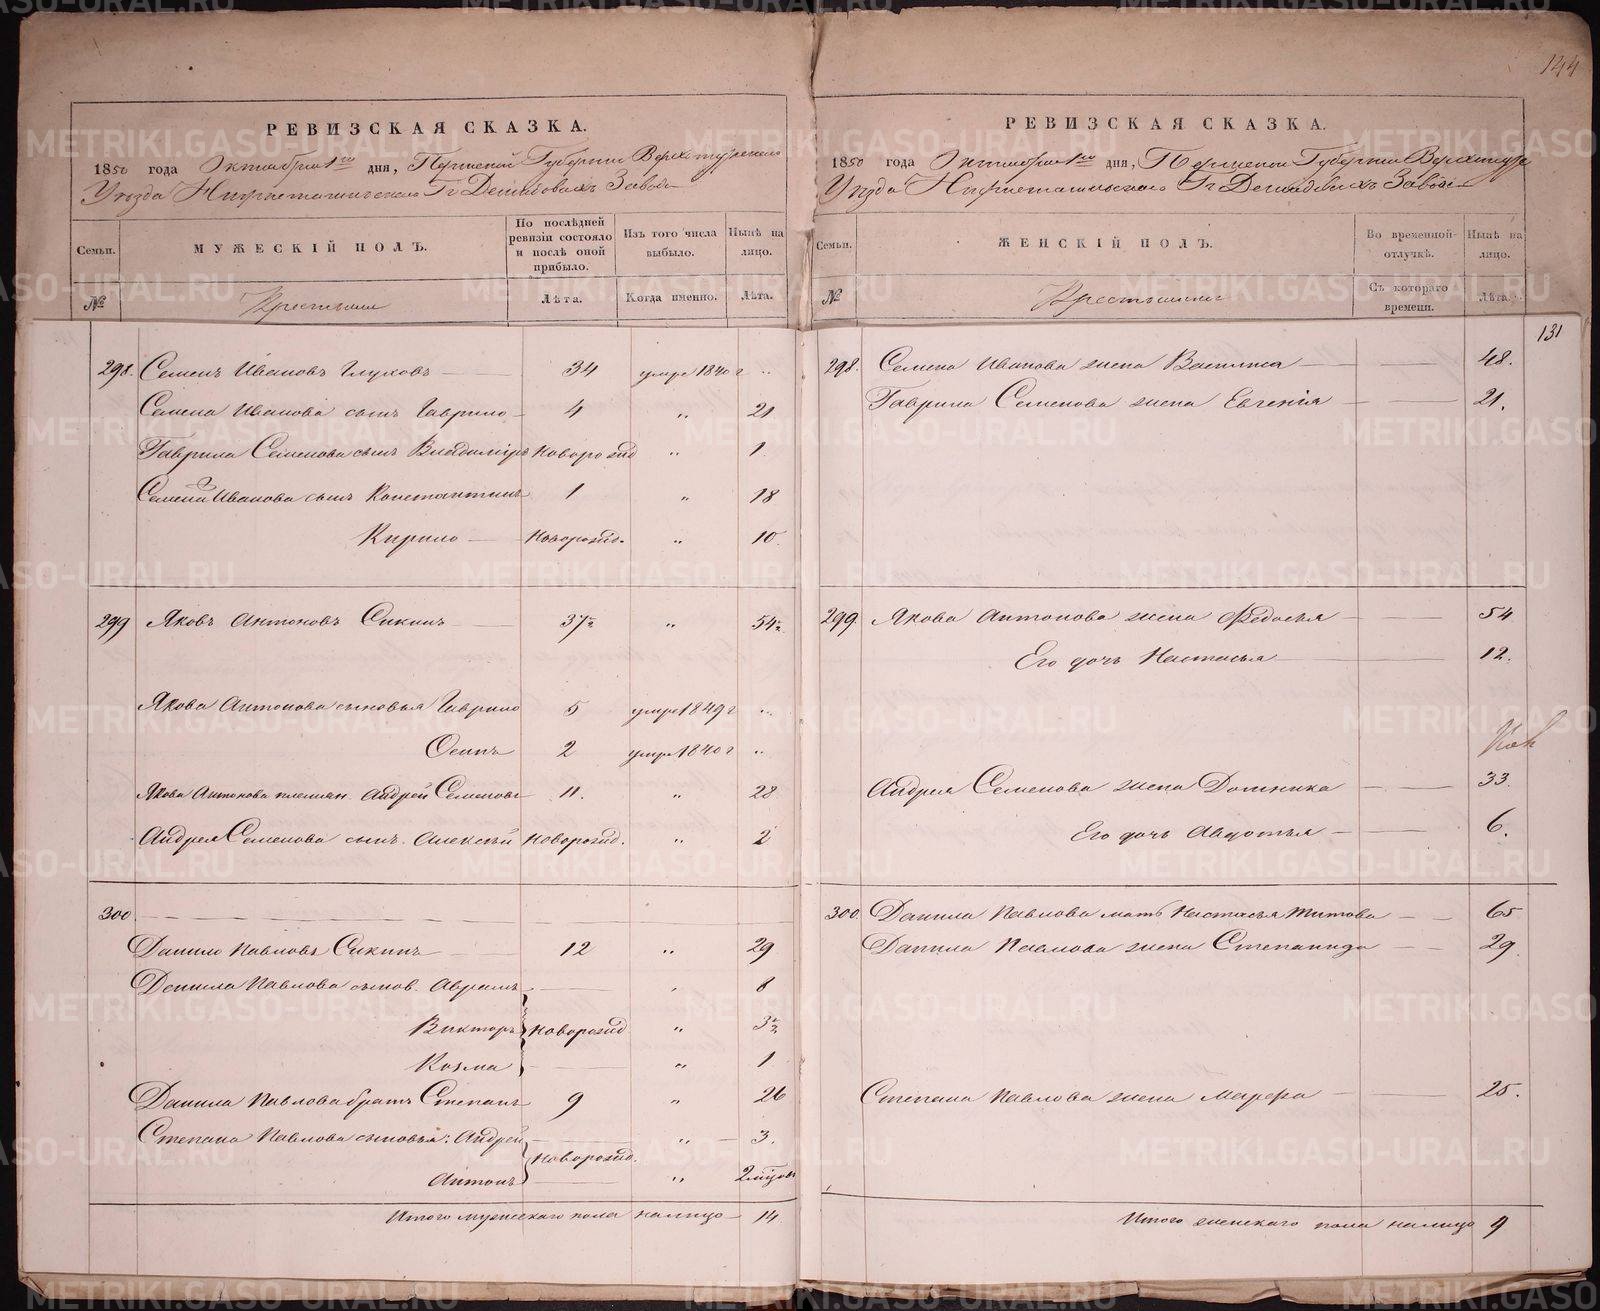 144
РЕВИЗСКАЯ СКАЗКА.
1850 года Октября 1го дня, Пермской Губернии Верхотурскаго
Уезда Нижнетагильскаго Гг Демидовыхъ Завода
Семьи.
МУЖЕСКІЙ ПОЛЪ.
По послѣдней ревизіи состояло и послѣ оной прибыло.
Изъ того числа выбыло.
Нынѣ на лицо.
№
Крестьяне
Лѣта.
Когда именно.
Лѣта.
298. Семенъ Ивановъ Глуховъ 34 умре 1840 г „
Семена Иванова сынъ Гаврило 4 „ 21
Гаврила Семенова сынъ Владимiръ новорожд „ 1
Семена Иванова сынъ Константинъ 1 „ 18
Кирило новорожд. „ 10
299 Яковъ Антоновъ Сикинъ 37½ „ 54½
Якова Антонова сыновья Гаврило 5 умре 1849 г „
Осипъ 2 умре 1840 г „
Якова Антонова племян. Андрей Семеновъ 11. „ 28
Андрея Семенова сынъ Алексѣй новорожд. „ 2
300.
Данило Павловъ Сикинъ 12 „ 29
Данила Павлова сынов. Аврамъ „ 8
Викторъ новорожд „ 3½
Козма „ 1
Данила Павлова братъ Степанъ 9 „ 26
Степана Павлова сыновья: Андрей „ 3.
новорожд.
Антонъ „ 2 мѣсяц
Итого мужескаго пола налицо 14
РЕВИЗСКАЯ СКАЗКА.
1850 года Октября 1го дня, Пермской Губерніи Верхотурск
Уезда Нижнетагильскаго Гг Демидовыхъ Завода
Семьи.
ЖЕНСКІЙ ПОЛЪ.
Во временной отлучкѣ.
Нынѣ на лицо.
№
Крестьянки
Съ котораго времени.
Лѣта.
131
298. Семена Иванова жена Василиса 48.
Гаврила Семенова жена Евгенiя 21.
299. Якова Антонова жена Федосья 54
Его дочь Настасья 12.
Андрея Семенова жена Домника 33.
Его дочь Авдотья 6.
300. Данила Павлова мать Настасья Титова 65
Данила Павлова жена Степанида 29.
Степана Павлова жена Марфа 25.
Итого женскаго пола налицо 9
METRIKI.GASO-URAL.RU